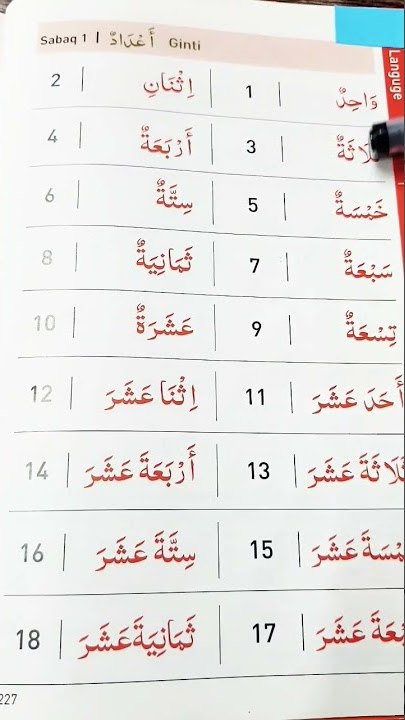 Sabaq 1 | أَعْدَادٌ Ginti
Languge
وَاحِدٌ | 1 اِثْنَانِ | 2
ثَلَاثَةٌ | 3 أَرْبَعَةٌ | 4
خَمْسَةٌ | 5 سِتَّةٌ | 6
سَبْعَةٌ | 7 ثَمَانِيَةٌ | 8
تِسْعَةٌ | 9 عَشَرَةٌ | 10
أَحَدَ عَشَرَ | 11 اِثْنَا عَشَرَ | 12
ثَلَاثَةَ عَشَرَ | 13 أَرْبَعَةَ عَشَرَ | 14
خَمْسَةَ عَشَرَ | 15 سِتَّةَ عَشَرَ | 16
سَبْعَةَ عَشَرَ | 17 ثَمَانِيَةَ عَشَرَ | 18
227